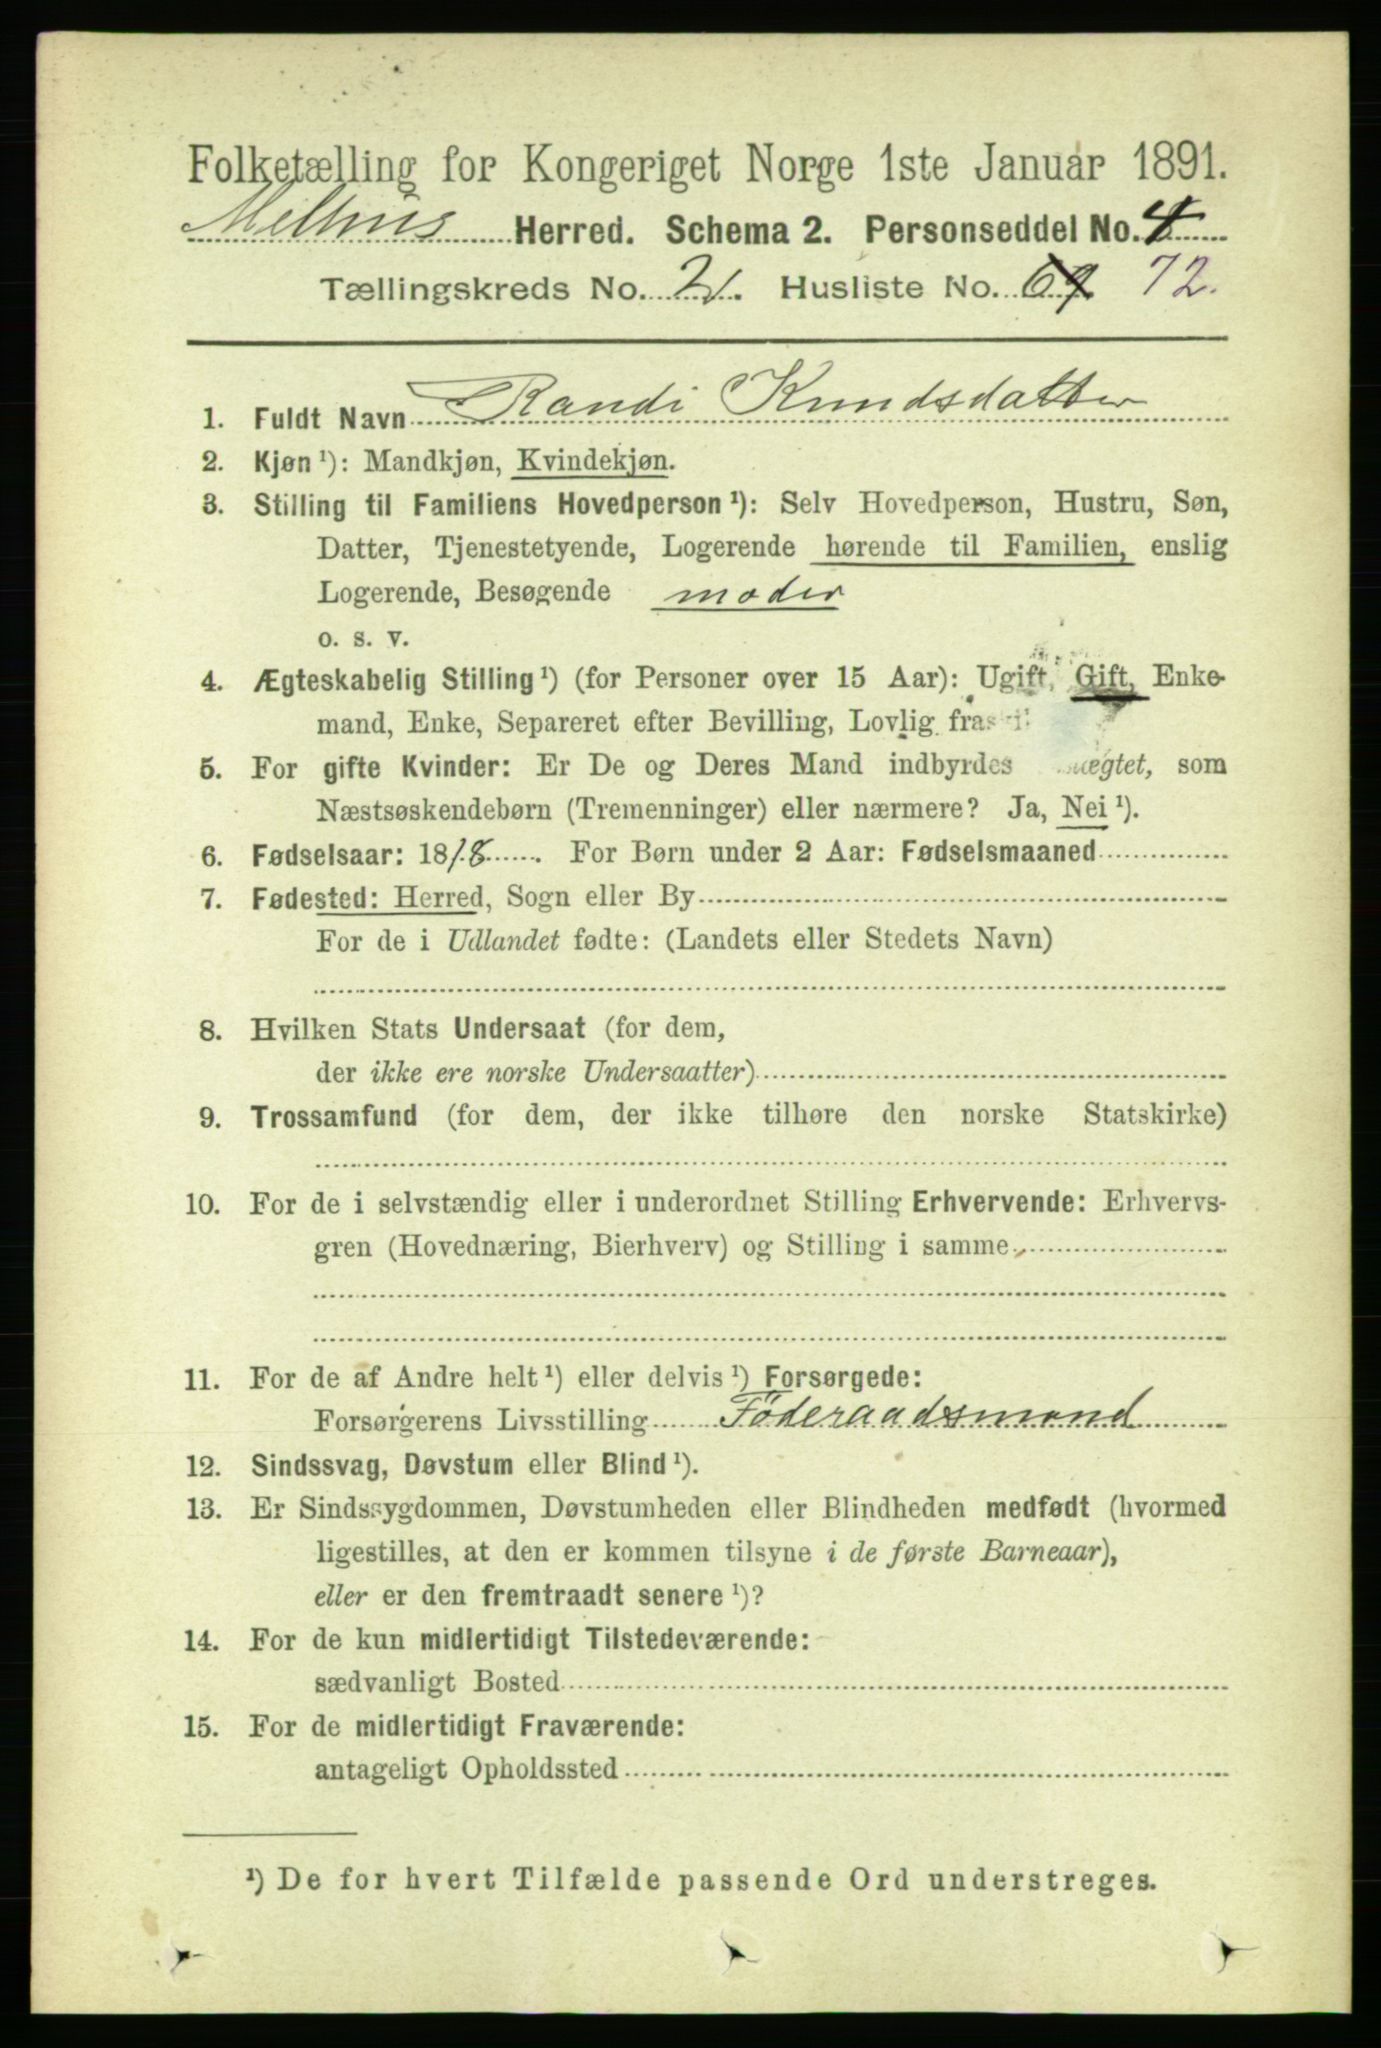 Folketælling for Kongeriget Norge 1ste Januar 1891.
Melhus Herred. Schema 2. Personseddel No. 4
Tællingskreds No. 2. Husliste No. 69 72.
1. Fuldt Navn Randi Knudsdatter
2. Kjøn ¹): Mandkjøn, Kvindekjøn.
3. Stilling til Familiens Hovedperson ¹): Selv Hovedperson, Hustru, Søn,
Datter, Tjenestetyende, Logerende hørende til Familien, enslig
Logerende, Besøgende moder
o. s. v.
4. Ægteskabelig Stilling ¹) (for Personer over 15 Aar): Ugift, Gift, Enke-
mand, Enke, Separeret efter Bevilling, Lovlig
5. For gifte Kvinder: Er De og Deres Mand indbyrdes som
Næstsøskendebørn (Tremenninger) eller nærmere? Ja, Nei ¹).
6. Fødselsaar: 1818. For Børn under 2 Aar: Fødselsmaaned
7. Fødested: Herred, Sogn eller By
For de i Udlandet fødte: (Landets eller Stedets Navn)
8. Hvilken Stats Undersaat (for dem,
der ikke ere norske Undersaatter)
9. Trossamfund (for dem, der ikke tilhøre den norske Statskirke)
10. For de i selvstændig eller i underordnet Stilling Erhvervende: Erhvervs-
gren (Hovednæring, Bierhverv) og Stilling i samme
11. For de af Andre helt ¹) eller delvis ¹) Forsørgede:
Forsørgerens Livsstilling Föderaadsmand
12. Sindssvag, Døvstum eller Blind ¹).
13. Er Sindssygdommen, Døvstumheden eller Blindheden medfødt (hvormed
ligestilles, at den er kommen tilsyne i de første Barneaar),
eller er den fremtraadt senere ¹)?
14. For de kun midlertidigt Tilstedeværende:
sædvanligt Bosted
15. For de midlertidigt Fraværende:
antageligt Opholdssted
¹) De for hvert Tilfælde passende Ord understreges.